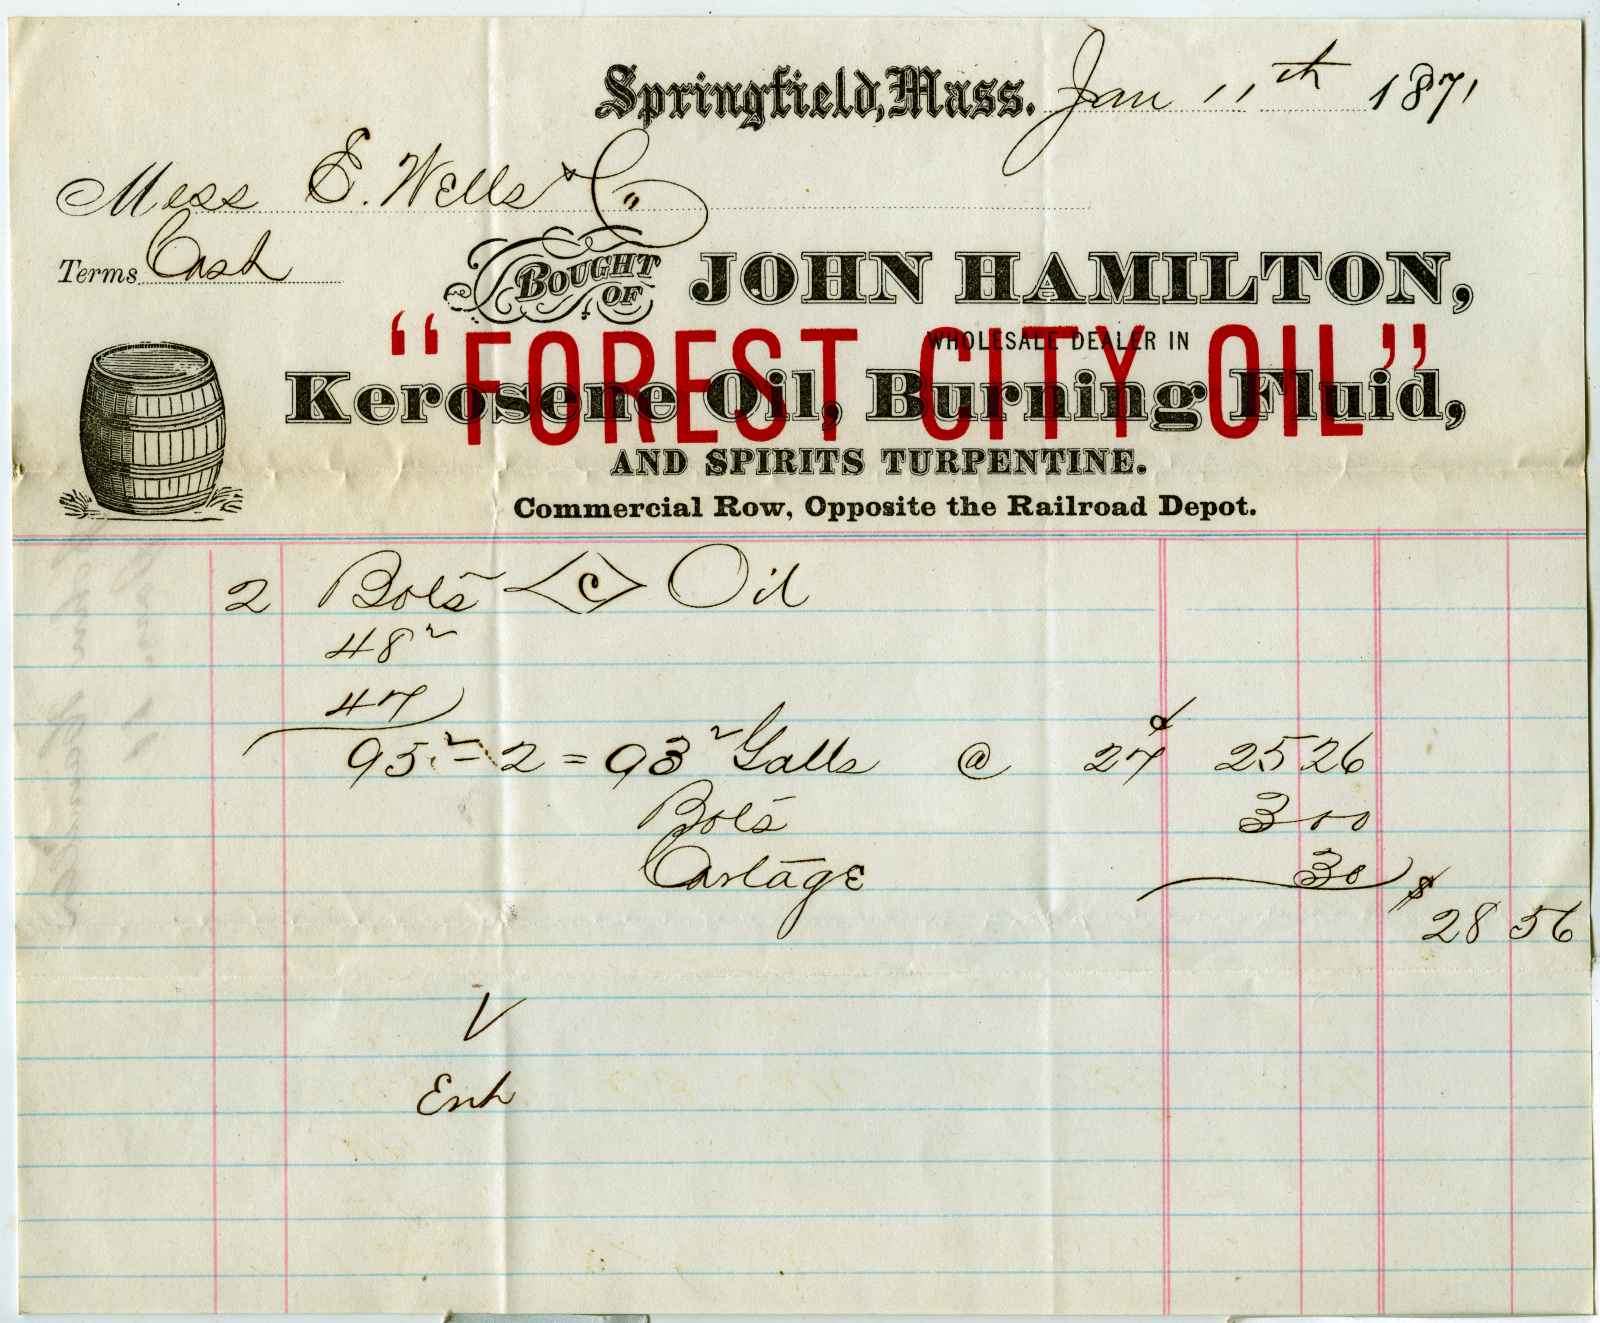 Springfield, Mass. Jan 11th 1871
Mess E. Wells & Co
Terms Cash
BOUGHT OF JOHN HAMILTON,
WHOLESALE DEALER IN
"FOREST CITY OIL"
Kerosene Oil, Burning Fluid,
AND SPIRITS TURPENTINE.
Commercial Row, Opposite the Railroad Depot.
2 Bbls C Oil
48²
47
95² - 2 = 93² Galls @ 27¢ 25 26
Bbls 3 00
Cartage 30
$ 28 56